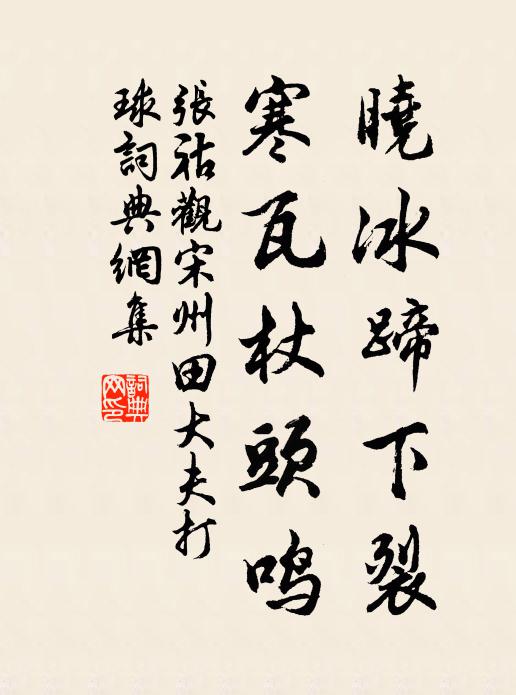 曉冰蹄下裂
寒瓦杖頭鳴
張祜觀宋州田大夫打
球詞典網集
詞典網印